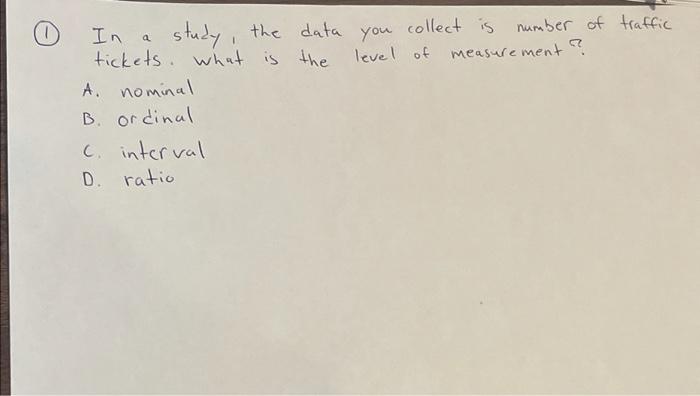 ① In a study, the data you collect is number of traffic
tickets. What is the level of measurement?
A. nominal
B. ordinal
C. interval
D. ratio